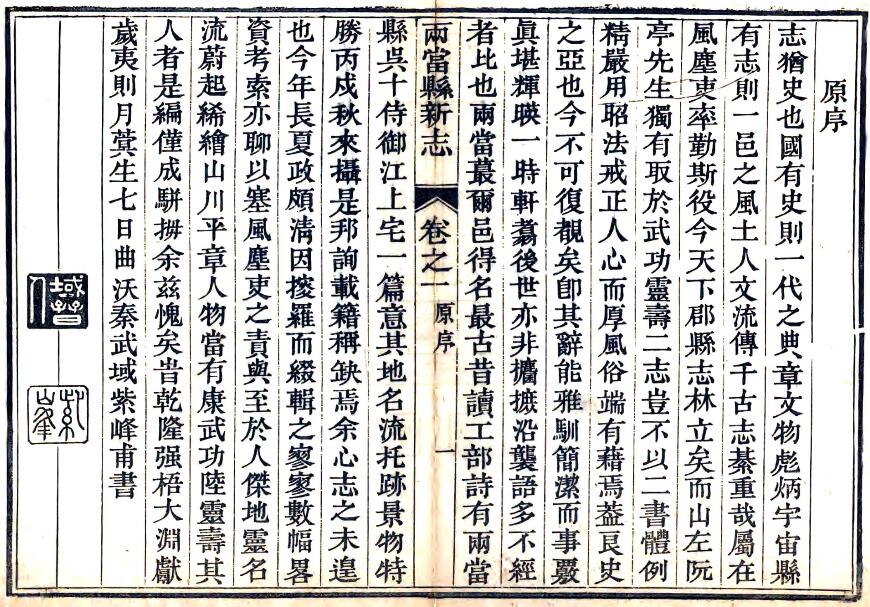 原序
志猶史也國有史則一代之典章文物彪炳宇宙縣
有志則一邑之風土人文流傳千古志綦重哉屬在
風塵吏率勤斯役今天下郡縣志林立矣而山左阮
亭先生獨有取於武功靈壽二志豈不以二書體例
精嚴用昭法戒正人心而厚風俗端有藉焉葢良史
之亞也今不可復覩矣卽其辭能雅馴簡潔而事覈
眞堪輝暎一時軒翥後世亦非攟摭沿襲語多不經
者比也兩當蕞爾邑得名最古昔讀工部詩有兩當
兩當縣新志 卷之一 原序 一
縣吳十侍御江上宅一篇意其地名流托跡景物特
勝丙戍秋來攝是邦詢載籍稱缺焉余心志之未遑
也今年長夏政頗淸因搜羅而綴輯之寥寥數幅畧
資考索亦聊以塞風塵吏之責與至於人傑地靈名
流蔚起絺繪山川平章人物當有康武功陸靈壽其
人者是編僅成駢拇余兹愧矣旹乾隆强梧大淵獻
歲夷則月蓂生七日曲沃秦武域紫峰甫書
域 印
紫峰